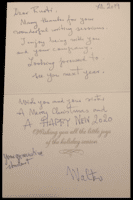 XII.2019
Dear Rudi.
Many thanks for your
wonderful writing sessions.
I enjoy being with
you and your company.
Looking forward to
see you next year.
Wish you and your
A Merry Christmas and
A HAPPY NEW 2020
Wishing you all the little joys
of the holiday season.
Your
student
Walter